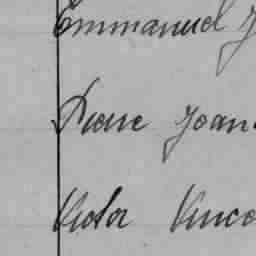 Emmanuel J
Pierre Jean
Victor Vince